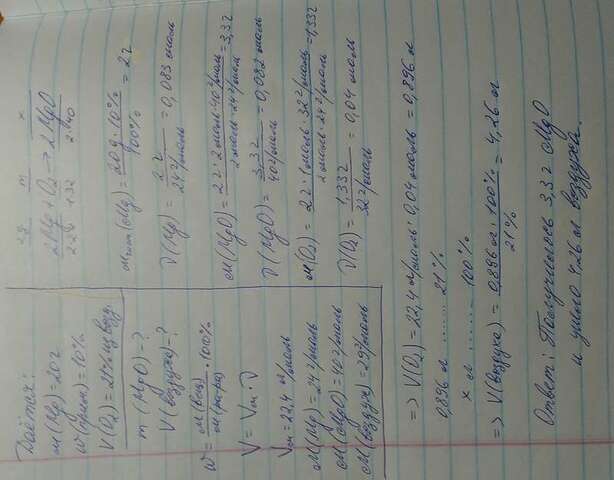 Даётся:
m(Mg) = 20 г
w(прим.) = 10%
V(O₂) = 21% из возд.
m(MgO) - ?
V(воздуха) - ?
w = m(вещ) / m(р-ра) · 100%
V = Vm · ν
Vm = 22,4 л/моль
M(Mg) = 24 г/моль
M(MgO) = 40 г/моль
M(воздуха) = 29 г/моль
2г m x
2Mg + O₂ → 2MgO
2·24 1·32 2·40
(Mg) = 20г · 10% / 100% = 2г
ν(Mg) = 2г / 24 г/моль = 0,083 моль
m(MgO) = 2г · 2 моль · 40 г/моль / 2 моль · 24 г/моль = 3,3г
ν(MgO) = 3,3г / 40 г/моль = 0,082 моль
m(O₂) = 2г · 1 моль · 32 г/моль / 2 моль · 24 г/моль = 1,33г
ν(O₂) = 1,33г / 32 г/моль = 0,04 моль
=> V(O₂) = 22,4 л/моль · 0,04 моль = 0,896 л
0,896 л ...... 21%
x л ...... 100%
=> V(воздуха) = 0,896 л · 100% / 21% = 4,26 л
Ответ: Получилось 3,3г MgO
и ушло 4,26 л воздуха.